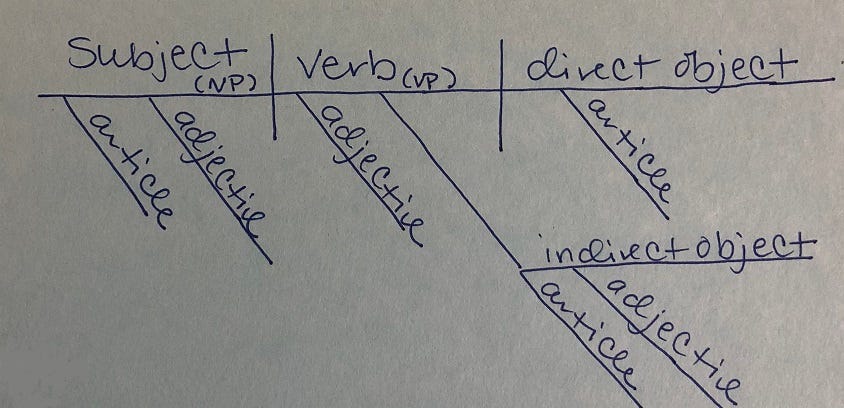 Subject (NP) verb (VP) direct object
article adjective adjective article
indirect object
article adjective